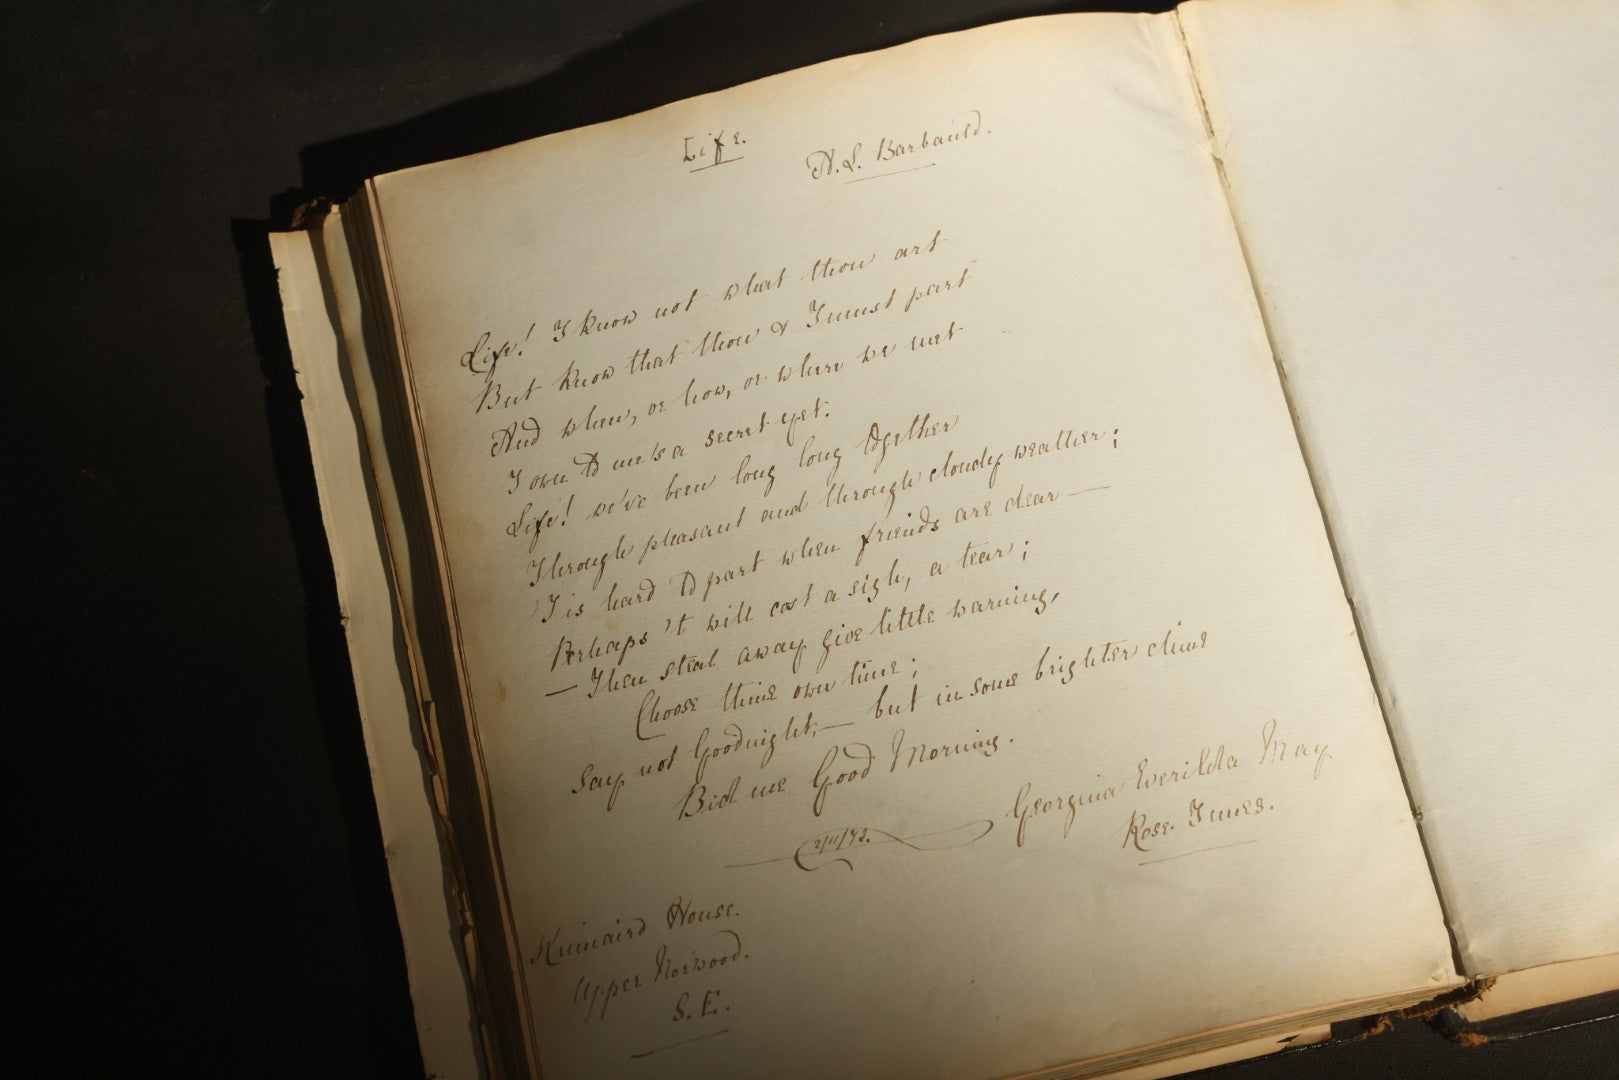 Life.
A. L. Barbauld.
Life! I know not what thou art
But know that thou & I must part
And when, or how, or where we met
I own to me's a secret yet.
Life! we've been long long together
Through pleasant and through cloudy weather;
'Tis hard to part when friends are dear —
Perhaps 't will cost a sigh, a tear;
— Then steal away give little warning,
Choose thine own time;
Say not Goodnight, — but in some brighter clime
Bid me Good Morning.
Georgina Everilda May
Rose Innes.
2/11/72.
Kinnaird House.
Upper Norwood.
S. E.